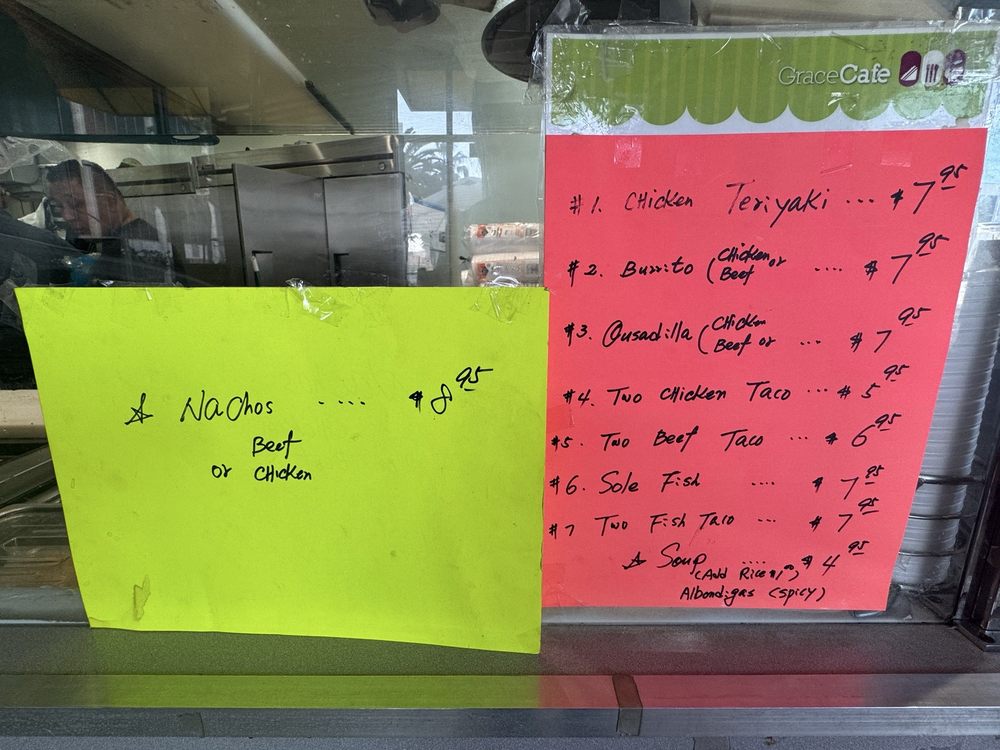 ☆ Nachos .... $8.95
Beef
or Chicken
GraceCafe
#1. Chicken Teriyaki ... $7.95
#2. Burrito (Chicken or
Beef .... $7.95
#3. Qusadilla (Chicken
Beef or ... $7.95
#4. Two Chicken Taco ... $5.95
#5. Two Beef Taco ... $6.95
#6. Sole Fish .... $7.95
#7 Two Fish Taco ... $7.95
☆ Soup .... $4.95
(Add Rice $1.00)
Albondigas (Spicy)